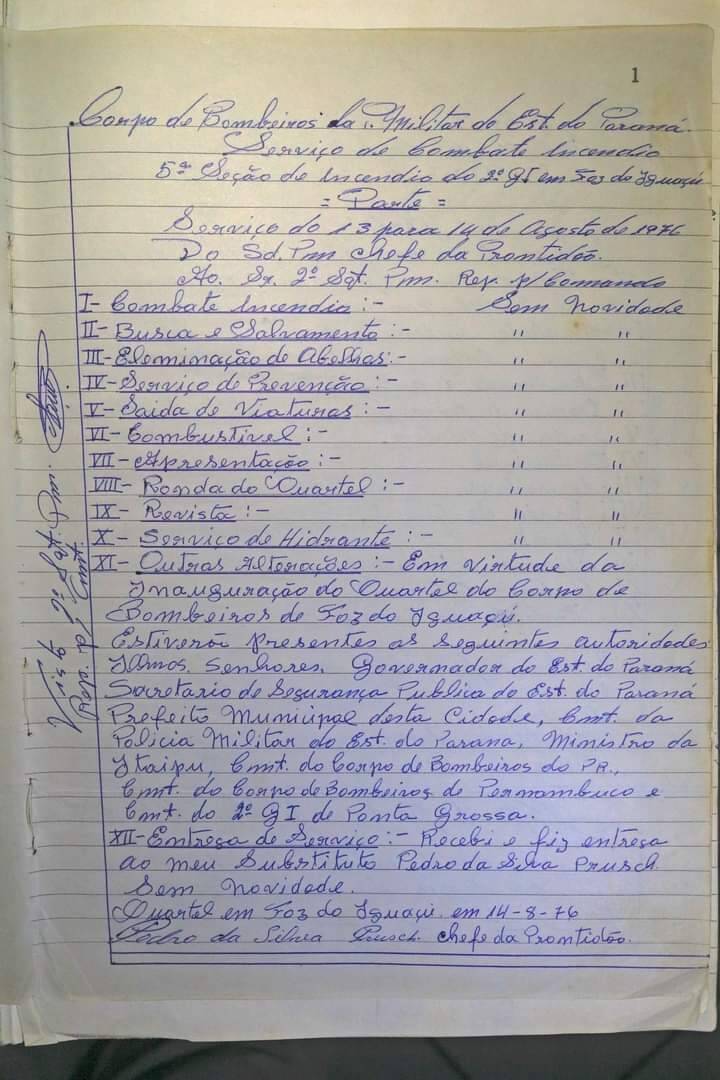 1
Corpo de Bombeiros da P. Militar do Est. do Paraná.
Serviço de Combate Incendio
5ª Seção de Incendio do 2º GI em Foz do Iguaçú
= Parte =
Serviço do 13 para 14 de Agosto de 1976
Do Sd. Pm Chefe da Prontidão.
Ao. Sr. 2º Sgt. Pm. Resp. p/ Comando
I- Combate Incendio :- Sem Novidade
II- Busca e Salvamento :- " "
III- Eleminação de Abelhas :- " "
IV- Serviço de Prevenção :- " "
V- Saida de Viaturas :- " "
VI- Combustivel :- " "
VII- Apresentação :- " "
VIII- Ronda do Quartel :- " "
IX- Revista :- " "
X- Serviço de Hidrante :- " "
XI- Outras Alterações :- Em virtude da
Inauguração do Quartel do Corpo de
Bombeiros de Foz do Iguaçú.
Estiverão presentes as seguintes autoridades
Ilmos. Senhores. Governador do Est. do Paraná
Secretario de Segurança Publica do Est. do Paraná
Prefeito Municipal desta Cidade, Cmt. da
Policia Militar do Est. do Parana, Ministro da
Itaipu, Cmt. do Corpo de Bombeiros do PR.,
Cmt. do Corpo de Bombeiros de Pernambuco e
Cmt. do 2º GI de Ponta Grossa.
XII- Entrega de Serviço :- Recebi e fiz entrega
ao meu Substituto Pedro da Silva Prusch.
Sem Novidade.
Quartel em Foz do Iguaçú. em 14-8-76
Pedro da Silva Prusch. Chefe da Prontidão.
Visto 2º Sgt. Pm.
Resp. p/ Cmt.